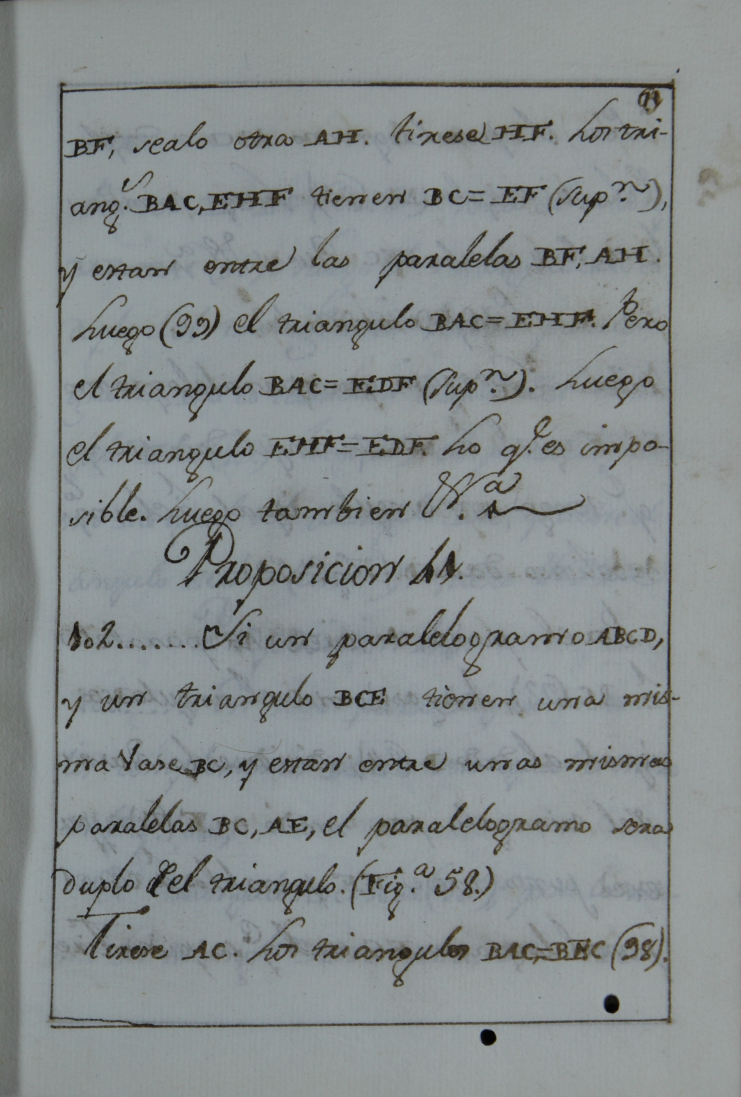 BF, sealo otra AH. tirese HF. Los tri-
ang.s BAC, EHF tienen BC = EF (sup.n),
y estan entre las paralelas BF, AH.
Luego (99) el triangulo BAC = EHF. Pero
el triangulo BAC = EDF (sup.n). Luego
el triangulo EHF = EDF. Lo q.e es impo-
sible. Luego tambien &.a
Proposicion 41.
102........Si un paralelogramo ABCD,
y un triangulo BCE tienen una mis-
ma Vase BC, y estan entre unas mismas
paralelas BC, AE, el paralelogramo sera
duplo del triangulo. (Fig.a 58.)
Tirese AC. Los triangulos BAC, = BEC (98).